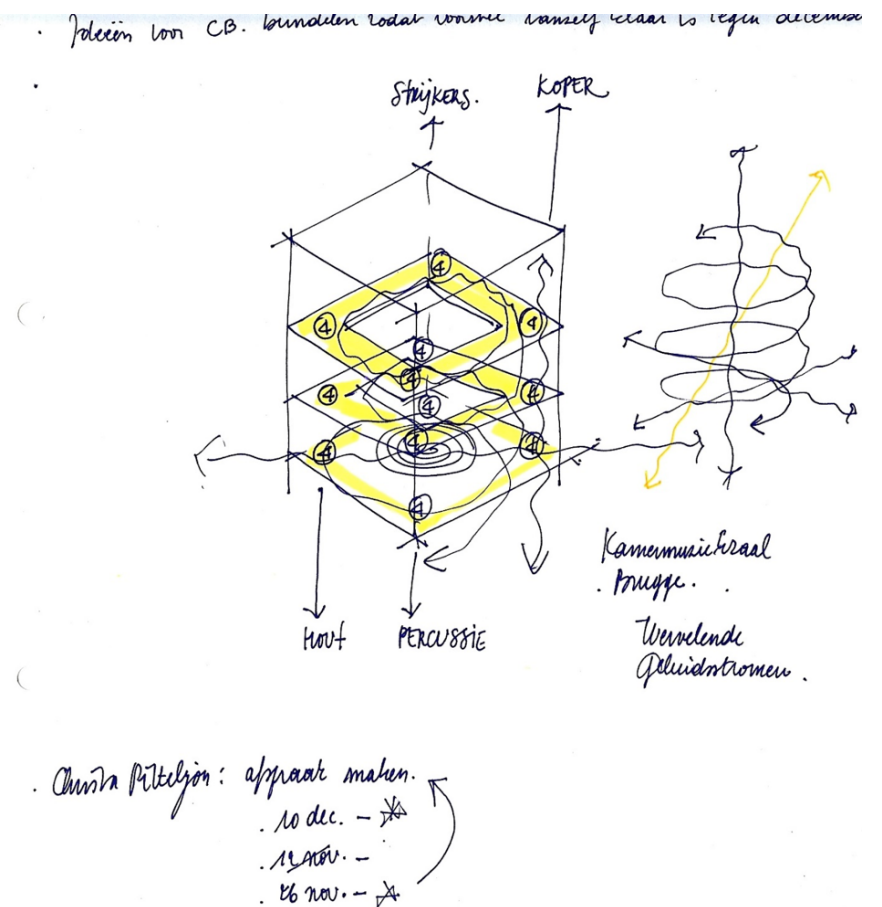 . Ideeën voor CB. bundelen zodat voorstel vanzelf klaar is tegen december
.
STRIJKERS. KOPER
4
4 4
4
4
4 4
4
4
4 4
4
HOUT PERCUSSIE
Kamermuziekzaal
. Brugge. .
Wervelende
Geluidsstromen.
. Christa Pitteljon: afspraak maken.
. 10 dec. –
. 12 nov. –
. 26 nov. –